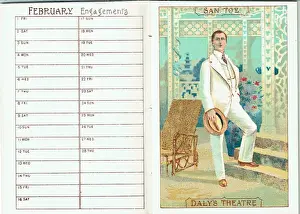 FEBRUARY Engagements
1 FRI 17 SUN
2 SAT 18 MON
3 SUN 19 TUE
4 MON 20 WED
5 TUE 21 THU
6 WED 22 FRI
7 THU 23 SAT
8 FRI 24 SUN
9 SAT 25 MON
10 SUN 26 TUE
11 MON 27 WED
12 TUE 28 THU
13 WED
14 THU
15 FRI
16 SAT
"SAN TOY"
DALY'S THEATRE